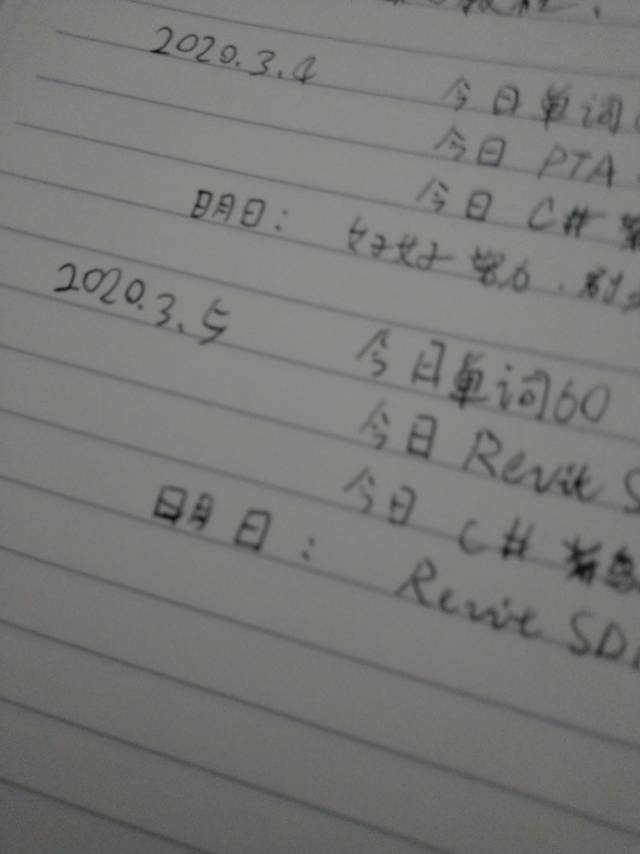 2020.3.4 今日单词
今日 PTA
今日 C#
明日: 好好努力
2020.3.5 今日单词60
今日 Revit
今日 C#
明日: Revit SD